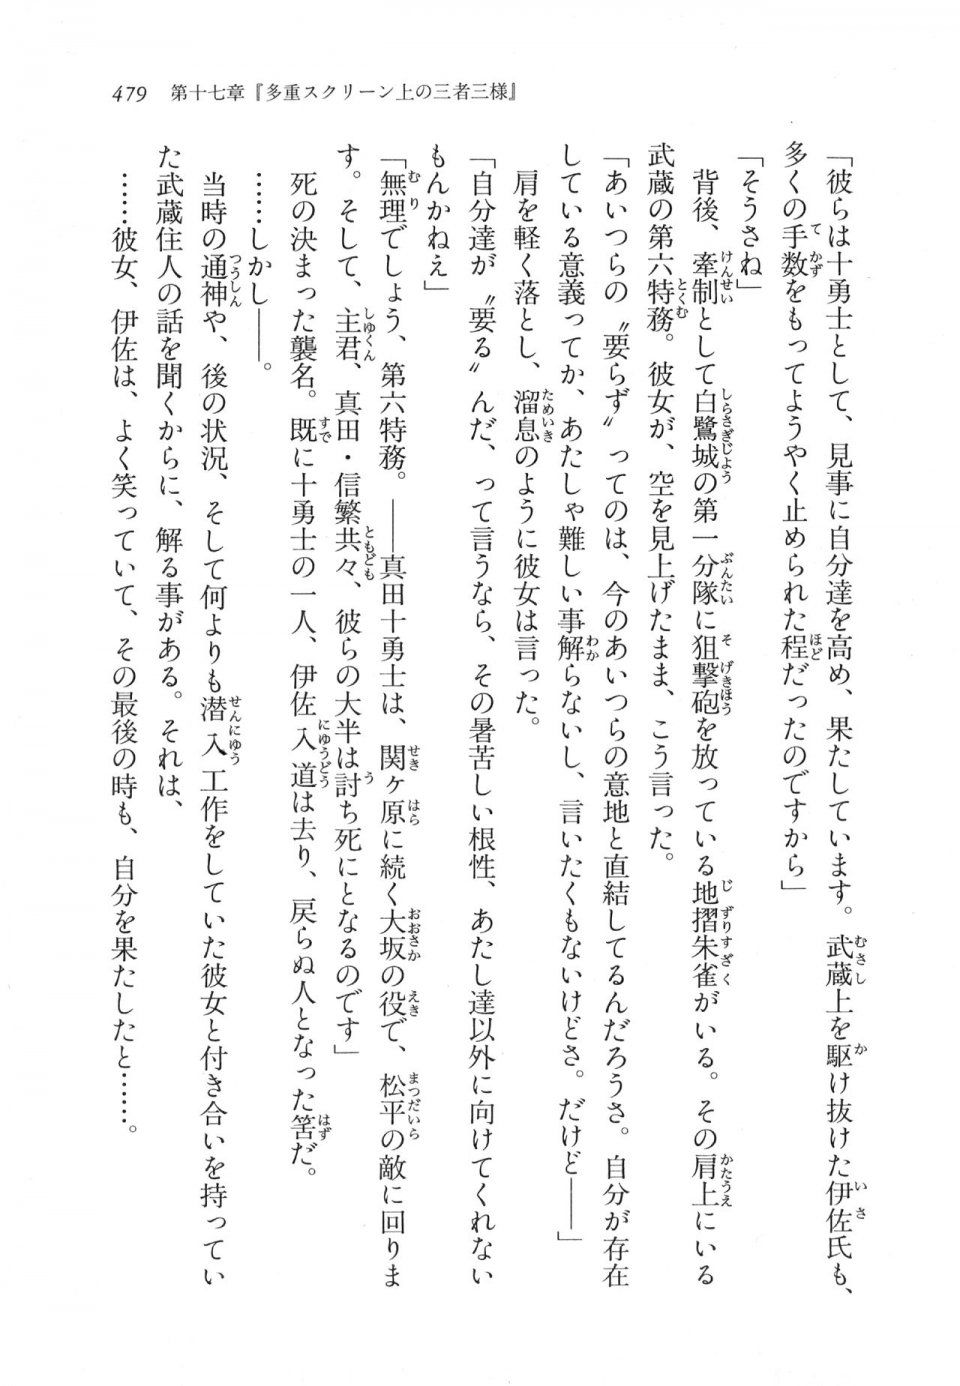 479　第十七章『多重スクリーン上の三者三様』
「彼らは十勇士として、見事に自分達を高め、果たしています。武蔵上を駆け抜けた伊佐氏も、
多くの手数をもってようやく止められた程だったのですから」
「そうさね」
　背後、牽制として白鷺城の第一分隊に狙撃砲を放っている地摺朱雀がいる。その肩上にいる
武蔵の第六特務。彼女が、空を見上げたまま、こう言った。
「あいつらの〝要らず〟ってのは、今のあいつらの意地と直結してるんだろうさ。自分が存在
している意義ってか、あたしゃ難しい事解らないし、言いたくもないけどさ。だけど――」
　肩を軽く落とし、溜息のように彼女は言った。
「自分達が〝要る〟んだ、って言うなら、その暑苦しい根性、あたし達以外に向けてくれない
もんかねえ」
「無理でしょう、第六特務。――真田十勇士は、関ヶ原に続く大坂の役で、松平の敵に回りま
す。そして、主君、真田・信繁共々、彼らの大半は討ち死にとなるのです」
　死の決まった襲名。既に十勇士の一人、伊佐入道は去り、戻らぬ人となった筈だ。
　……しかし――。
　当時の通神や、後の状況、そして何よりも潜入工作をしていた彼女と付き合いを持ってい
た武蔵住人の話を聞くからに、解る事がある。それは、
　……彼女、伊佐は、よく笑っていて、その最後の時も、自分を果たしたと……。